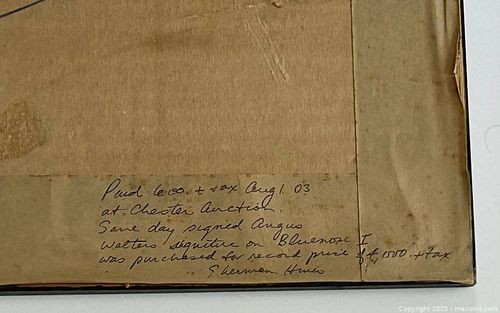 Paid 600. + tax Aug 1 03
at Chester Auction
Same day signed Angus
Walters signature on Bluenose I
was purchased for record price of ,000. + tax
Sherman Hines
Copyright 2025 - maxsold.com